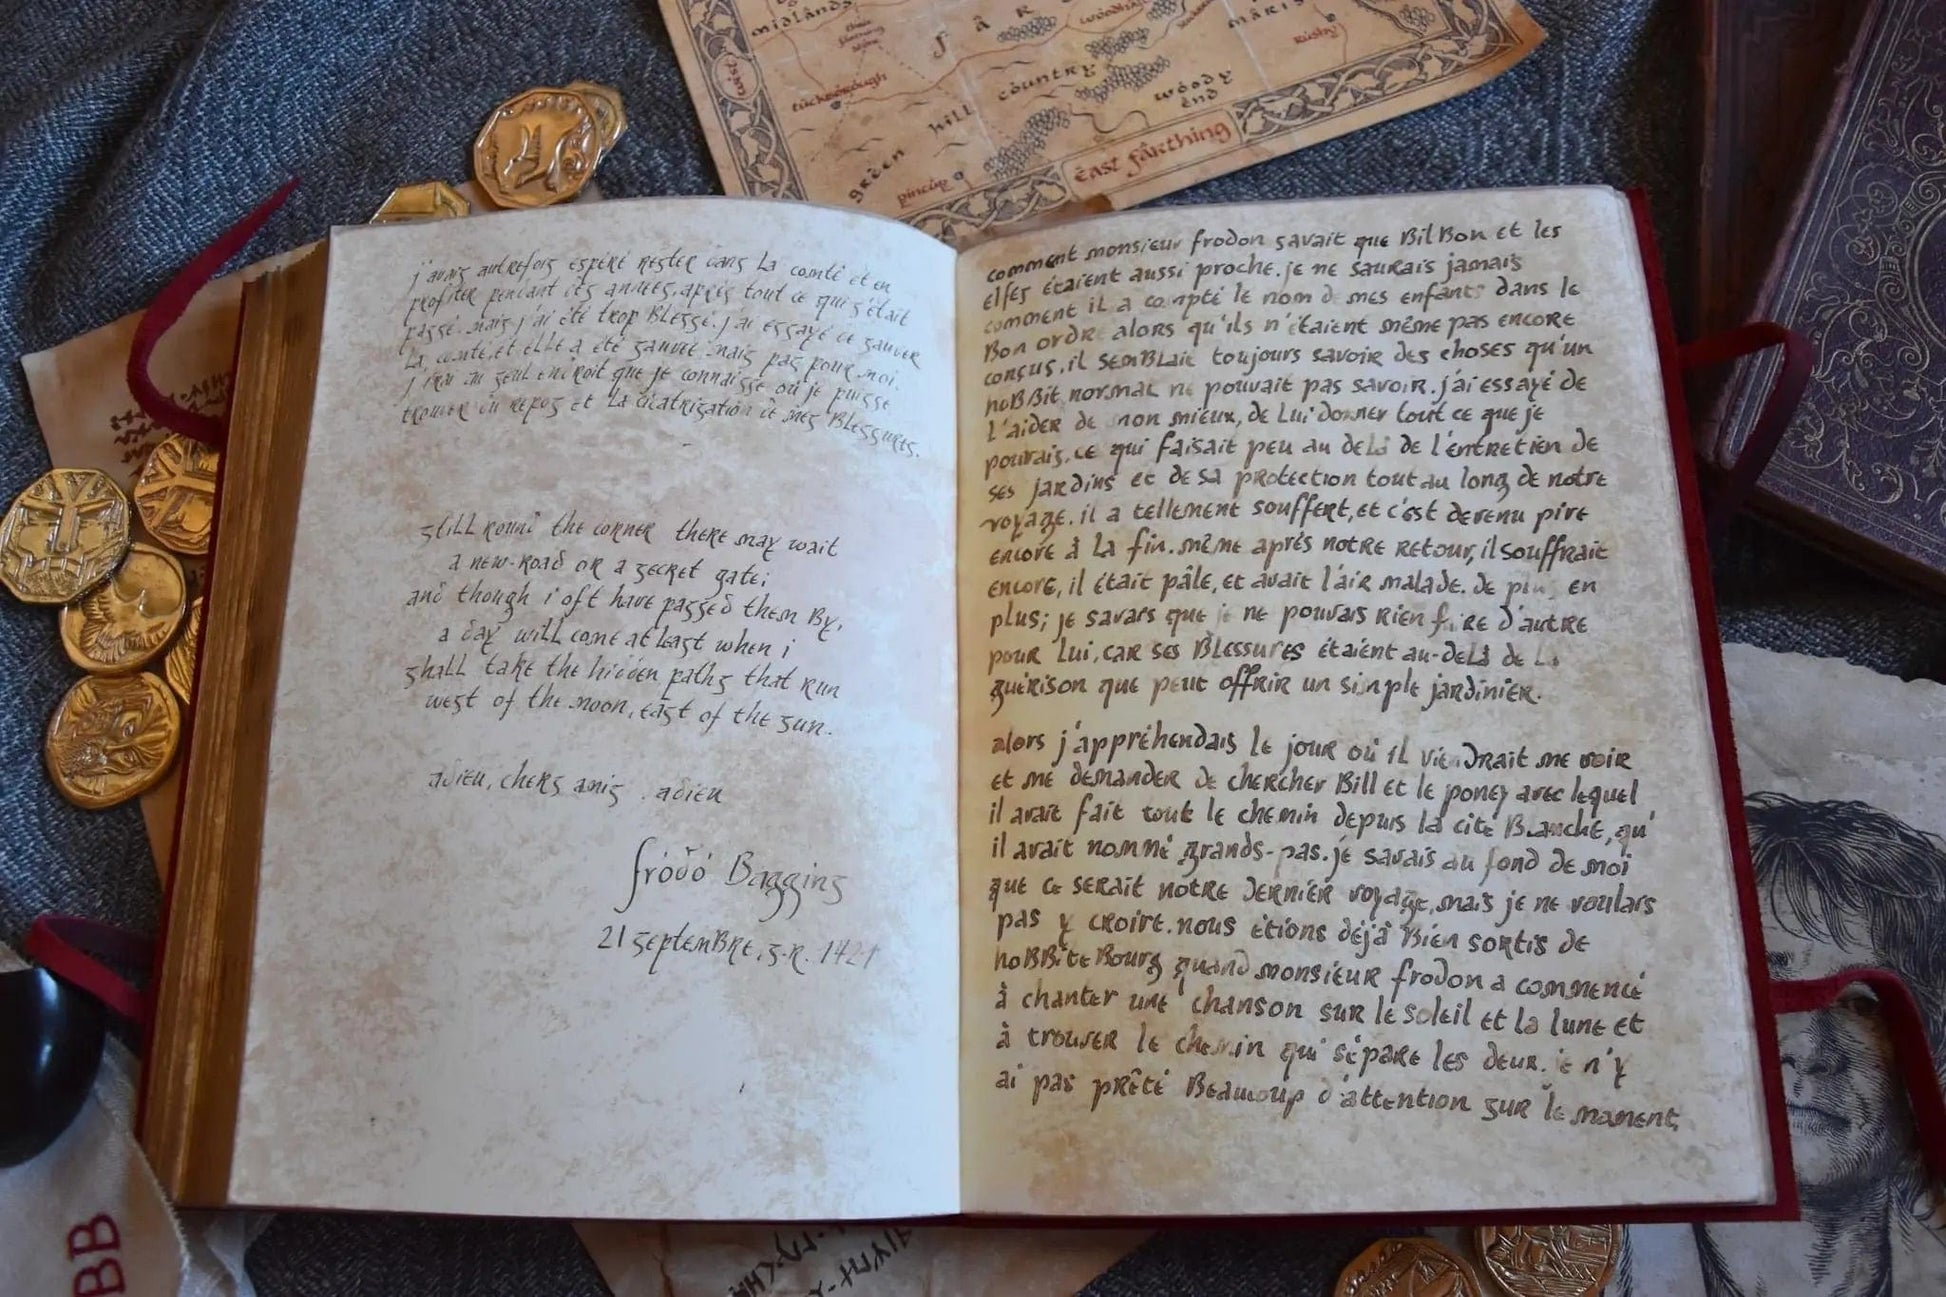 midlands
west
tuckborough
green
hill
country
pincup
woody
end
east farthing
j'avais autrefois espéré rester dans la comté et en
profiter pendant des années, après tout ce qui s'était
passé. mais j'ai été trop blessé. j'ai essayé de sauver
la comté, et elle a été sauvée, mais pas pour moi.
j'irai au seul endroit que je connaisse où je puisse
trouver du repos et la cicatrisation de mes blessures.
still round the corner there may wait
a new road or a secret gate;
and though i oft have passed them by,
a day will come at last when i
shall take the hidden paths that run
west of the moon, east of the sun.
adieu, chers amis. adieu
frodo Baggins
21 septembre, s.R. 1421
comment monsieur frodon savait que Bilbon et les
elfes étaient aussi proche. je ne saurais jamais
comment il a compté le nom de mes enfants dans le
Bon ordre alors qu'ils n'étaient même pas encore
conçus. il semblait toujours savoir des choses qu'un
hobbit normal ne pouvait pas savoir. j'ai essayé de
l'aider de mon mieux, de lui donner tout ce que je
pouvais. ce qui faisait peu au delà de l'entretien de
ses jardins et de sa protection tout au long de notre
voyage. il a tellement souffert, et c'est devenu pire
encore à la fin. même après notre retour, il souffrait
encore, il était pâle, et avait l'air malade. de plus en
plus; je savais que je ne pouvais rien faire d'autre
pour lui, car ses blessures étaient au-delà de la
guérison que peut offrir un simple jardinier.
alors j'appréhendais le jour où il viendrait me voir
et me demander de chercher Bill et le poney avec lequel
il avait fait tout le chemin depuis la cité Blanche, qu'
il avait nommé grands-pas. je savais au fond de moi
que ce serait notre dernier voyage, mais je ne voulais
pas y croire. nous étions déjà bien sortis de
hobbitebourg quand monsieur frodon a commencé
à chanter une chanson sur le soleil et la lune et
à trouver le chemin qui sépare les deux. je n'y
ai pas prêté beaucoup d'attention sur le moment,
BB